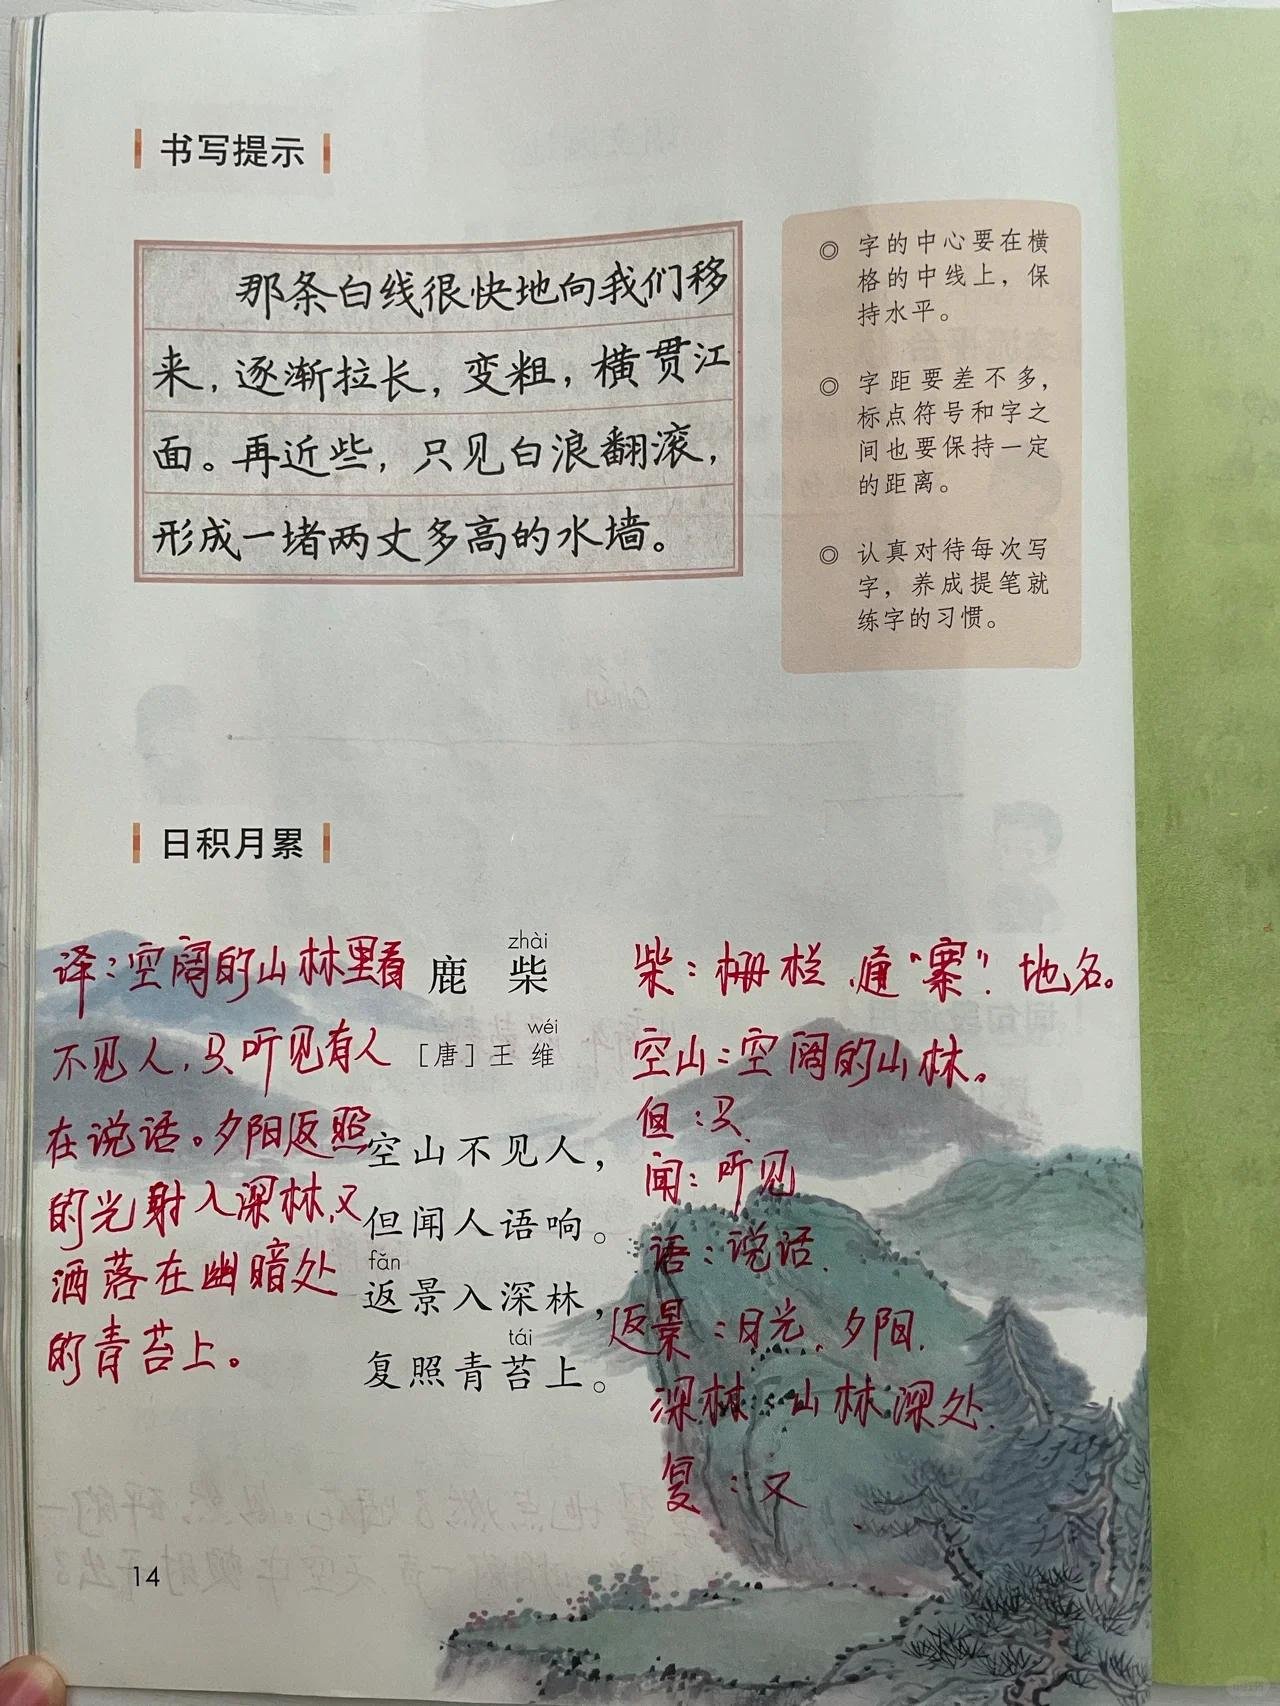 书写提示
那条白线很快地向我们移
来，逐渐拉长，变粗，横贯江
面。再近些，只见白浪翻滚，
形成一堵两丈多高的水墙。
◎ 字的中心要在横
格的中线上，保
持水平。
◎ 字距要差不多，
标点符号和字之
间也要保持一定
的距离。
◎ 认真对待每次写
字，养成提笔就
练字的习惯。
日积月累
译：空阔的山林里看
不见人，只听见有人
在说话。夕阳返照
的光射入深林，又
洒落在幽暗处
的青苔上。
zhài
鹿柴
wéi
［唐］王维
空山不见人，
但闻人语响。
fǎn
返景入深林，
tái
复照青苔上。
柴：栅栏，通“寨”．地名。
空山：空阔的山林。
但：只．
闻：听见
语：说话．
返景：日光．夕阳．
深林：山林深处．
复：又
14